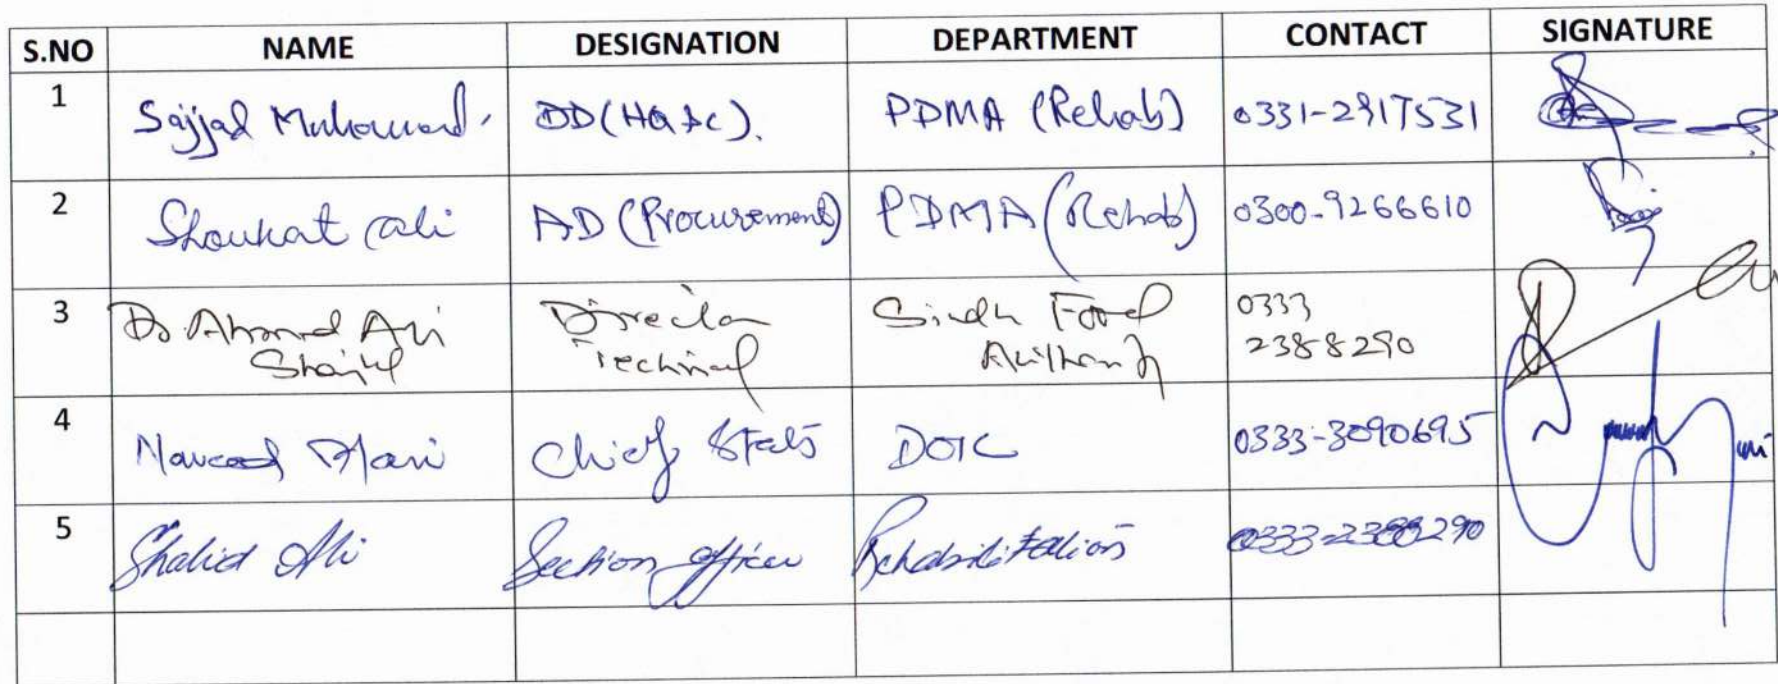 S.NO NAME DESIGNATION DEPARTMENT CONTACT SIGNATURE
1 Sajjad Muhammad DD (HQ &c). PDMA (Rehab) 0331-2917531
2 Shoukat Ali AD (Procurement) PDMA (Rehab) 0300-9266610
3 Dr. Ahmed Ali Director Sindh Food 0333
Shaikh Technical Authority 2388290
4 Naveed Chief Stats 0333-3090695
5 Shahid Ali Section officer Rehabilitation 0333-2388290